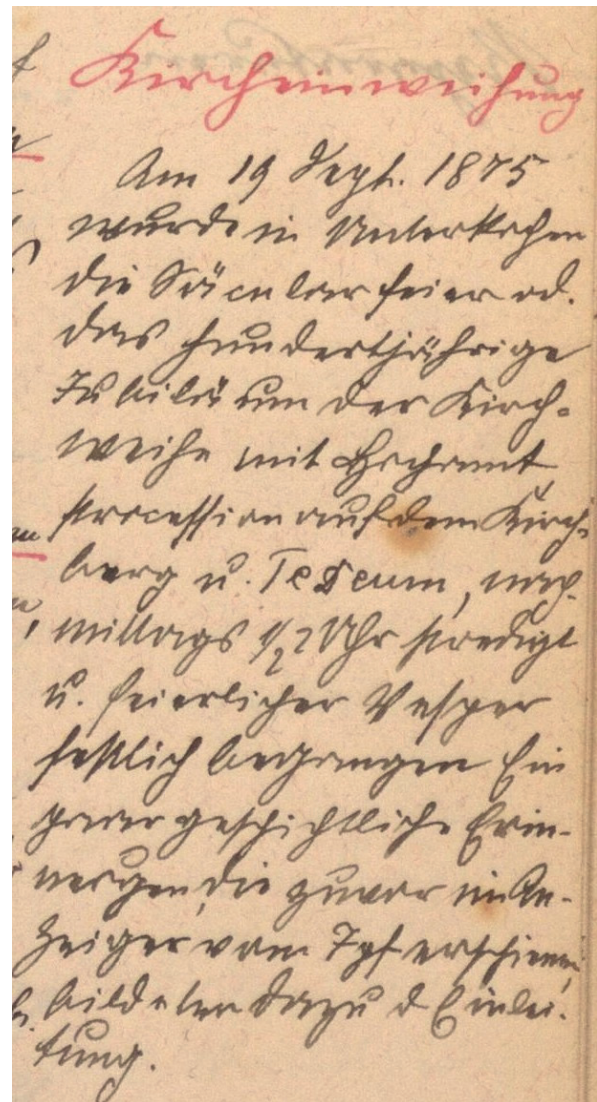 Kircheinweihung
Am 19 Sept. 1875
wurde in Unterkochen
die Säcularfeier od.
das hundertjährige
Jubiläum der Kirch-
weihe mit Hochamt
Procession auf dem Kirch-
berg u. Tedeum, nach-
mittags 1/2 2 Uhr Predigt
u. feierlicher Vesper
festlich begangen Ein
paar geschichtliche Erin-
nergen, die zuvor im An-
zeiger vom Ipf erschienen
bildeten dazu d Einlei-
tung.